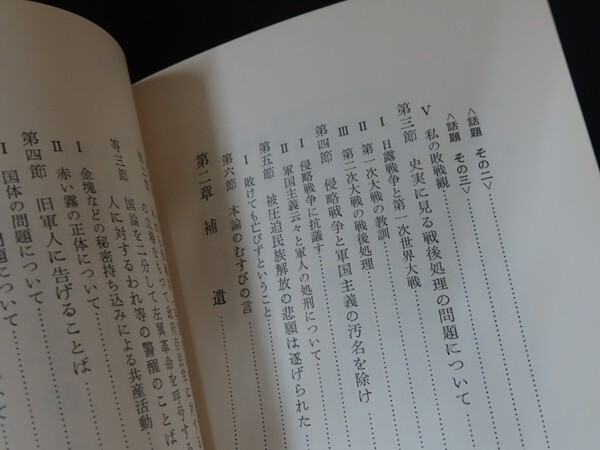 <話題 その二>
<話題 その三>
Ⅴ 私の敗戦観
第三節 史実に見る戦後処理の問題について
Ⅰ 日露戦争と第一次世界大戦
Ⅱ 第一次大戦の教訓
Ⅲ 第二次大戦の戦後処理
第四節 侵略戦争と軍国主義の汚名を除け
Ⅰ 侵略戦争に抗議す
Ⅱ 軍国主義云々と軍人の処刑について
第五節 被圧迫民族解放の悲願は遂げられた
Ⅰ 敗けても亡びずということ
第六節 本論のむすびの言
第二章 補遺
国論を二分して左翼革命を呼号する
人に対するわれ等の警醒のことば
等三節
Ⅰ 金塊などの秘密持ち込みによる共産活動
Ⅱ 赤い霧の正体について
第四節 旧軍人に告げることば
Ⅰ 国体の問題について